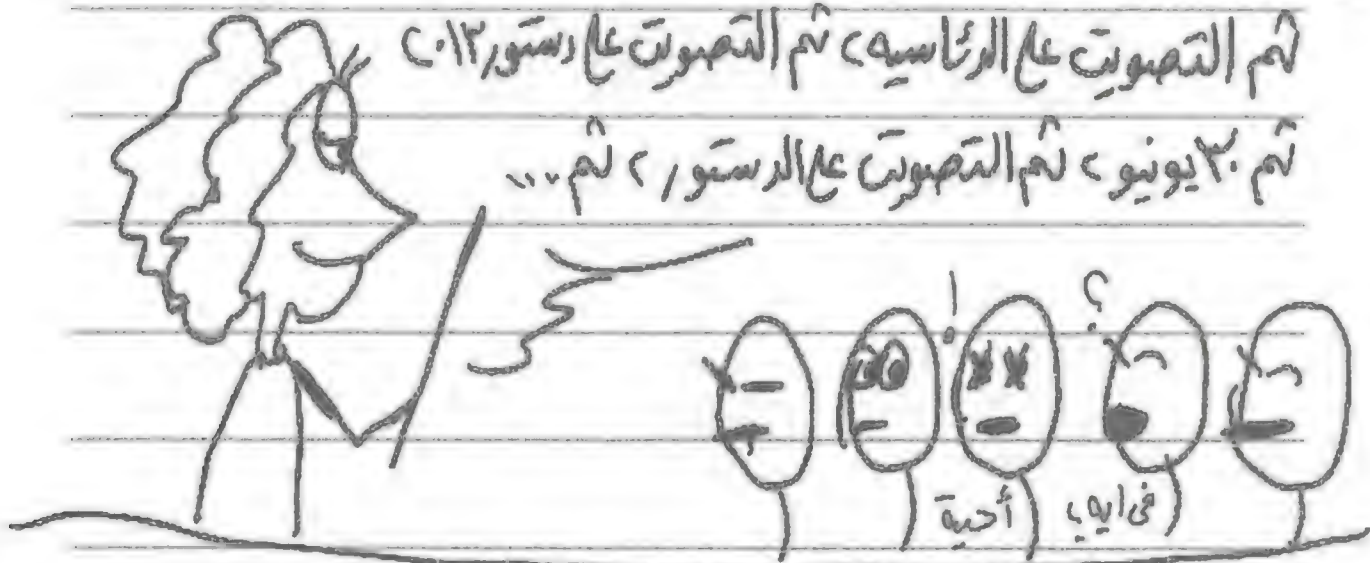 ثم التصويت على الرئاسيه، ثم التصويت على دستور ٢٠١٣
ثم ٣٠ يونيو، ثم التصويت على الدستور، ثم ...
؟ !
في ايه أحية